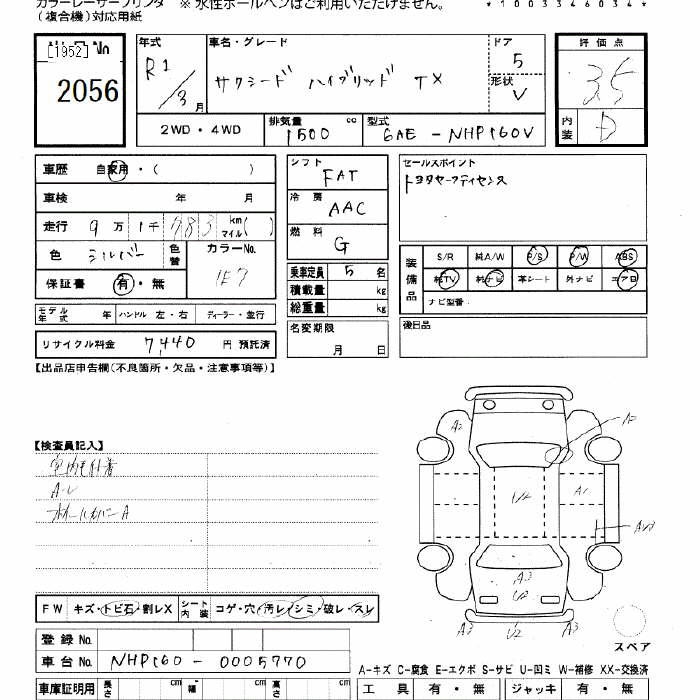 カラーレーザープリンタ ※ 水性ボールペンはご利用いただけません。 *10033346034*
(複合機)対応用紙
[1952] No
2056
年式 R1/3月
車名・グレード サクシード ハイブリッド TX
ドア 5
形状 V
評価点 3.5
内装 D
2WD・4WD
排気量 1500 cc
型式 6AE-NHP160V
車歴 自家用・( )
車検 年 月
走行 9万1千783 km マイル( )
色 シルバー 色替 カラーNo. 1E7
保証書 有・無
モデル年式 年 ハンドル 左・右 ディーラー・並行
リサイクル料金 7,440 円 預託済
シフト FAT
冷房 AAC
燃料 G
乗車定員 5名
積載量 kg
総重量 kg
名変期限 月 日
セールスポイント
トヨタセーフティセンス
装備品 S/R 純A/W P/S P/W ABS
純TV 純ナビ 革シート 外ナビ エアB
ナビ型番:
後日品
【出品店申告欄(不良箇所・欠品・注意事項等)】
【検査員記入】
A-L
ホイールカバーA
A2 A2
U2 A1
A3
U2
A3 U2 A3
スペア
FW キズ・トビ石・割レX シート内装 コゲ・穴・汚レ・シミ・破レ・スレ
登録No.
車台No. NHP160-0005770
A-キズ C-腐食 E-エクボ S-サビ U-凹ミ W-補修 XX-交換済
車庫証明用 長さ cm 幅 cm cm 工具 有・無 ジャッキ 有・無